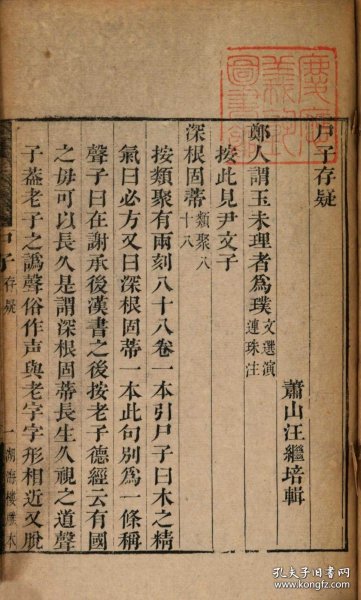 尸子存疑
蕭山汪繼培輯
鄭人謂玉未理者為璞文選演連珠注
按此見尹文子
深根固蒂類聚八十八
按類聚有兩刻八十八卷一本引尸子曰木之精
氣曰必方又曰深根固蒂一本此句別為一條稱
聲子曰在謝承後漢書之後按老子德經云有國
之母可以長久是謂深根固蒂長生久視之道聲
子蓋老子之譌聲俗作声與老字字形相近又脫
尸子 存疑
一 湖海樓雕本
孔夫子旧书网
www.kongfz.com